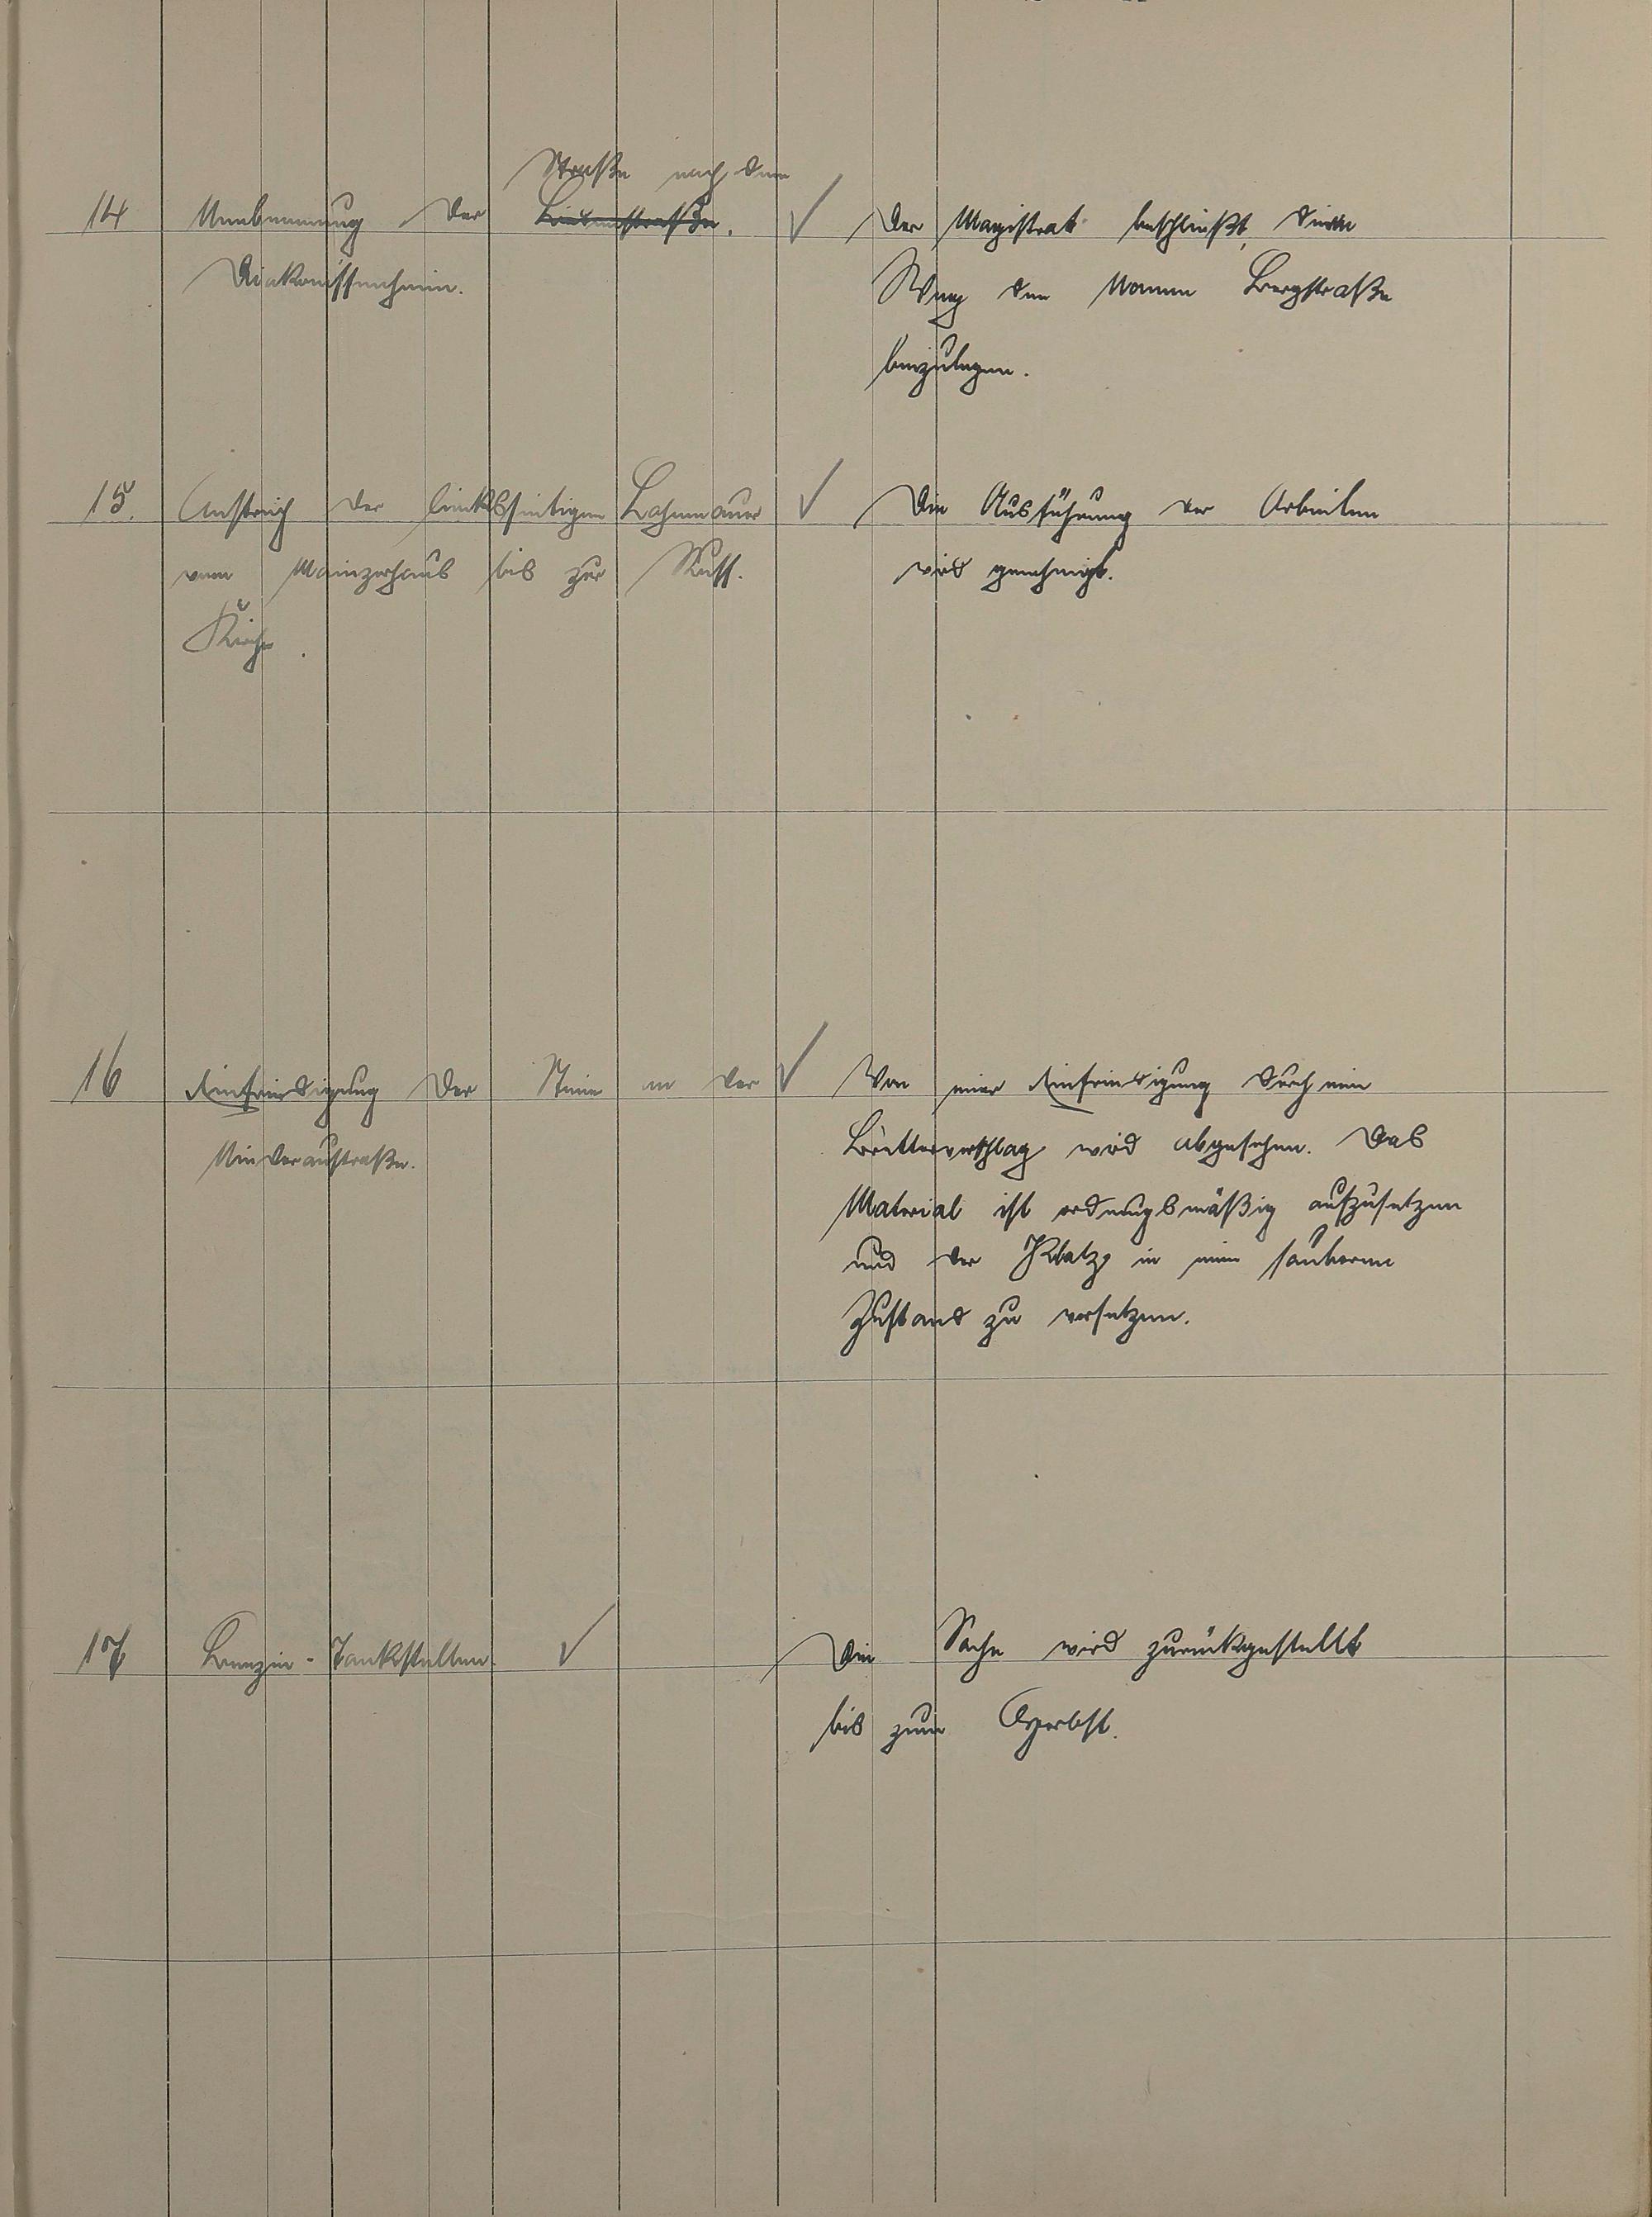 Straße nach dem
14 Umbenennung der Lindenstraße. ✓ Der Magistrat beschließt, diesem
Diakonissenheim. Weg den Namen Bergstraße
beizulegen.
15. Anstrich der linksseitigen Lahnmauer ✓ Die Ausführung der Arbeiten
vom Mainzerhaus bis zur Russ. wird genehmigt.
Kirche.
16 Einfriedigung der Steine an der ✓ Von einer Einfriedigung durch ein
Bretterverschlag wird abgesehen. Das
Material ist ordnungsmäßig aufzusetzen
und der Platz in ein säuberen
Zustand zu versetzen.
17 Benzin-Tankstellen. ✓ Die Sache wird zurückgestellt
bis zum Herbst.